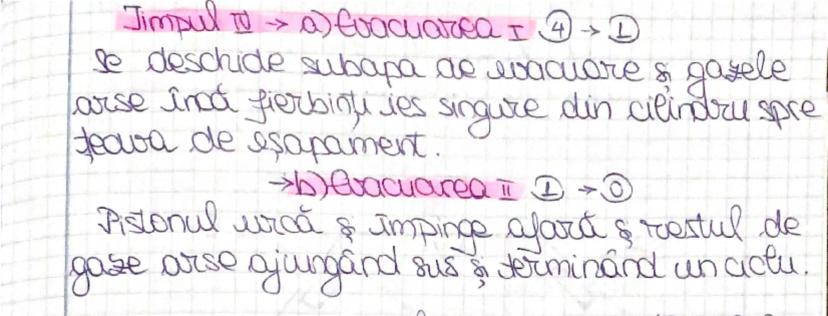 Timpul IV → a) Evacuarea I ④ → ①
Se deschide subapa de evacuare & gazele
arse încă fierbinți ies singure din cilindru spre
țeava de eșapament.
→ b) Evacuarea II ① → ⓪
Pistonul urcă & împinge afară & restul de
gaze arse ajungând sus și terminând un ciclu.